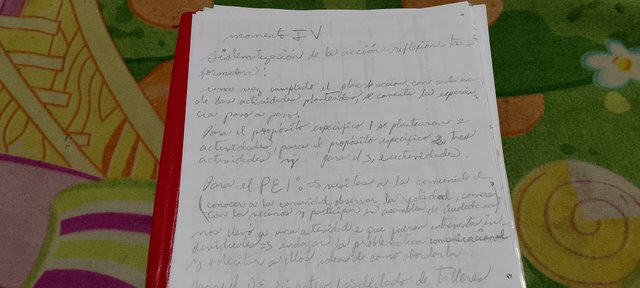 momento IV
Sistematización de la acción-reflexion-trans
formadora:
una vez cumplido el plan de acción, con cada una
de las actividades planteadas, se comenta la experien
cia paso a paso.
Para el propósito especifico 1 se plantearon 2
actividades, para el propósito especifico 2, tres
actividades y para el 3, 2 actividades.
Para el PE1: => visitas a la comunidad
(conocer a la comunidad, observar la realidad, conversar
con los vecinos y participar en asambleas de ciudadanos)
nos llevó a una actividad 2 que fueron entrevistas in
dividuales => indagar la problemática comunicacional
y solicitar a ellos ideas de como abordarla
Para el PE 1 => dictado de Talleres